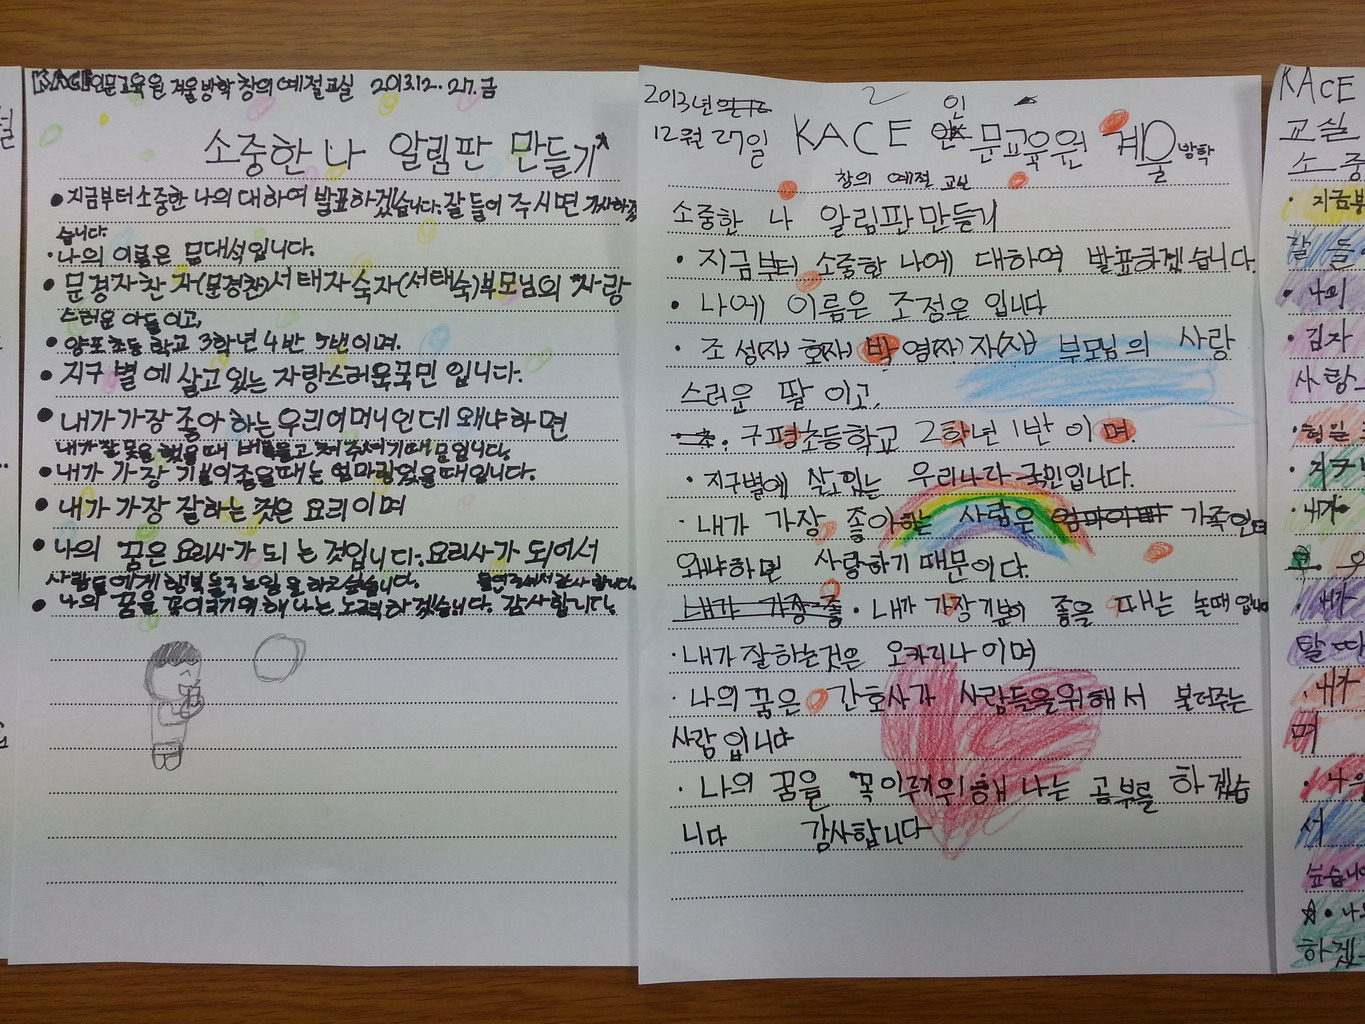 KACE인문교육원 겨울방학 창의예절교실 2013.12.27.금
소중한 나 알림판 만들기
• 지금부터 소중한 나의 대하여 발표하겠습니다. 잘 들어 주시면 감사하겠
습니다.
• 나의 이름은 문대석입니다.
• 문경자찬 자(문경찬)서태자숙자(서태숙)부모님의 자랑
스러운 아들이고,
• 양포초등학교 3학년 4반 5번이며.
• 지구별에 살고있는 자랑스러운국민 입니다.
• 내가 가장 좋아하는 우리어머니인데 왜냐하면
내가 잘못을 했을때
• 내가 가장 기분이좋을때는 엄마랑있을때입니다.
• 내가 가장 잘하는 것은 요리이며
• 나의 꿈은 요리사가 되는 것입니다. 요리사가 되어서
사람들에게 행복을 주는일을 하고싶습니다.
• 나의 꿈을 꼭이루기위해 나는 노력하겠습니다. 감사합니다.
2013년
12월 27일 KACE 인문교육원 계울방학
창의 예절 교실
소중한 나 알림판만들기
• 지금부터 소중함 나에 대하여 발표하겠습니다.
• 나에 이름은 조정은 입니다
• 조 성(자) 호(자) 박 영(자) 자(자) 부모님의 사랑
스러운 딸 이고,
• 구평초등학교 2학년 1반 이며.
• 지구별에 살고있는 우리나라 국민입니다.
• 내가 가장 좋아하는 사람은 엄마아빠 가족인데
왜냐하면 사랑하기 때문이다.
내가 가장 좋 • 내가 가장기분이 좋을 때는 놀때입니다
• 내가 잘하는것은 오카리나이며
• 나의꿈은 간호사가 사람들을위해서 봉더주는
사람 입니다
• 나의 꿈을 꼭이루기위해 나는 공부를 하겠습
니다 감사합니다
KACE
교실
소중
• 지금부
잘 들
• 나의
• 김자
사랑스
• 형일
• 지구
• 내가
• 내가
• 내가
며
• 나의
서
싶습니
☆• 나
하겠